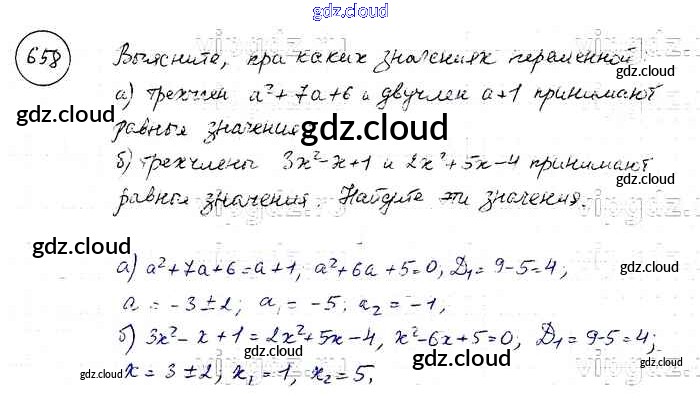 gdz.cloud
658 Выясните, при каких значениях переменной
gdz.cloud
а) трехчлен a²+7a+6 и двучлен a+1 принимают
gdz.cloud
равные значения
gdz.cloud
б) трехчлены 3x²-x+1 и 2x²+5x-4 принимают
gdz.cloud
равные значения. Найдите эти значения.
gdz.cloud
а) a²+7a+6=a+1, a²+6a+5=0, D₁=9-5=4;
gdz.cloud
a=-3±2; a₁=-5; a₂=-1,
б) 3x²-x+1=2x²+5x-4, x²-6x+5=0, D₁=9-5=4;
gdz.cloud
x=3±2, x₁=1, x₂=5,
gdz.cloud
gdz.cloud